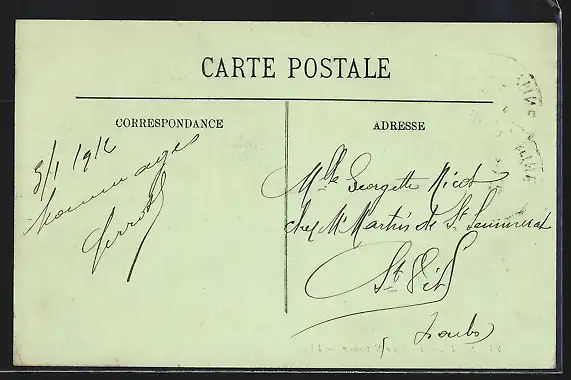 CARTE POSTALE
CORRESPONDANCE
ADRESSE
5/1 1912
hommages
Mlle Georgette Nicot
chez Mr Martin de St
St Vit
Doubs